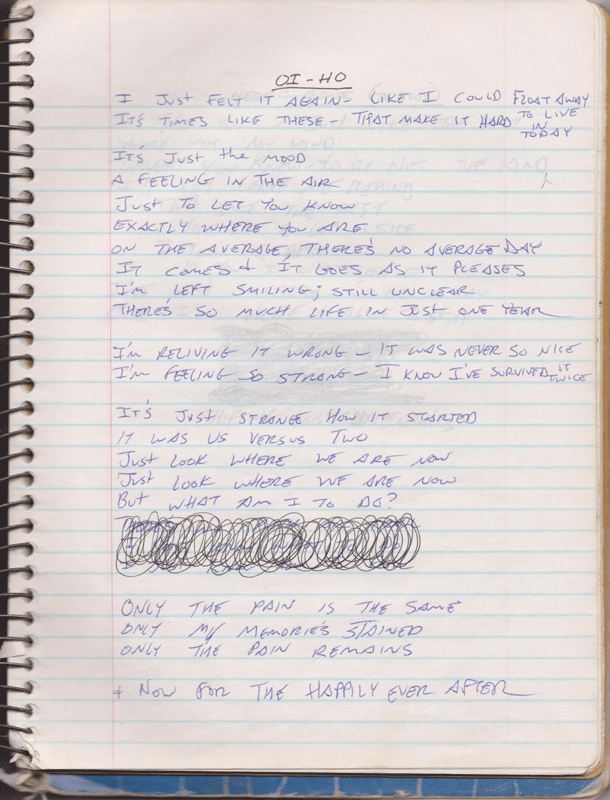 OI-HO
I JUST FELT IT AGAIN- LIKE I COULD FLOAT AWAY
IT'S TIMES LIKE THESE- THAT MAKE IT HARD TO LIVE IN TODAY
IT'S JUST THE MOOD
A FEELING IN THE AIR
JUST TO LET YOU KNOW
EXACTLY WHERE YOU ARE
ON THE AVERAGE, THERE'S NO AVERAGE DAY
IT COMES & IT GOES AS IT PLEASES
I'M LEFT SMILING; STILL UNCLEAR
THERE'S SO MUCH LIFE IN JUST ONE YEAR
I'M RELIVING IT WRONG - IT WAS NEVER SO NICE
I'M FEELING SO STRONG - I KNOW I'VE SURVIVED IT TWICE
IT'S JUST STRANGE HOW IT STARTED
IT WAS US VERSUS TWO
JUST LOOK WHERE WE ARE NOW
JUST LOOK WHERE WE ARE NOW
BUT WHAT AM I TO DO?
ONLY THE PAIN IS THE SAME
ONLY MY MEMORIE'S STAINED
ONLY THE PAIN REMAINS
& NOW FOR THE HAPPILY EVER AFTER